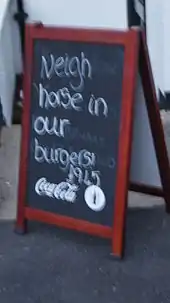 Neigh
horse in
our
burgers!
1945
Coca-Cola